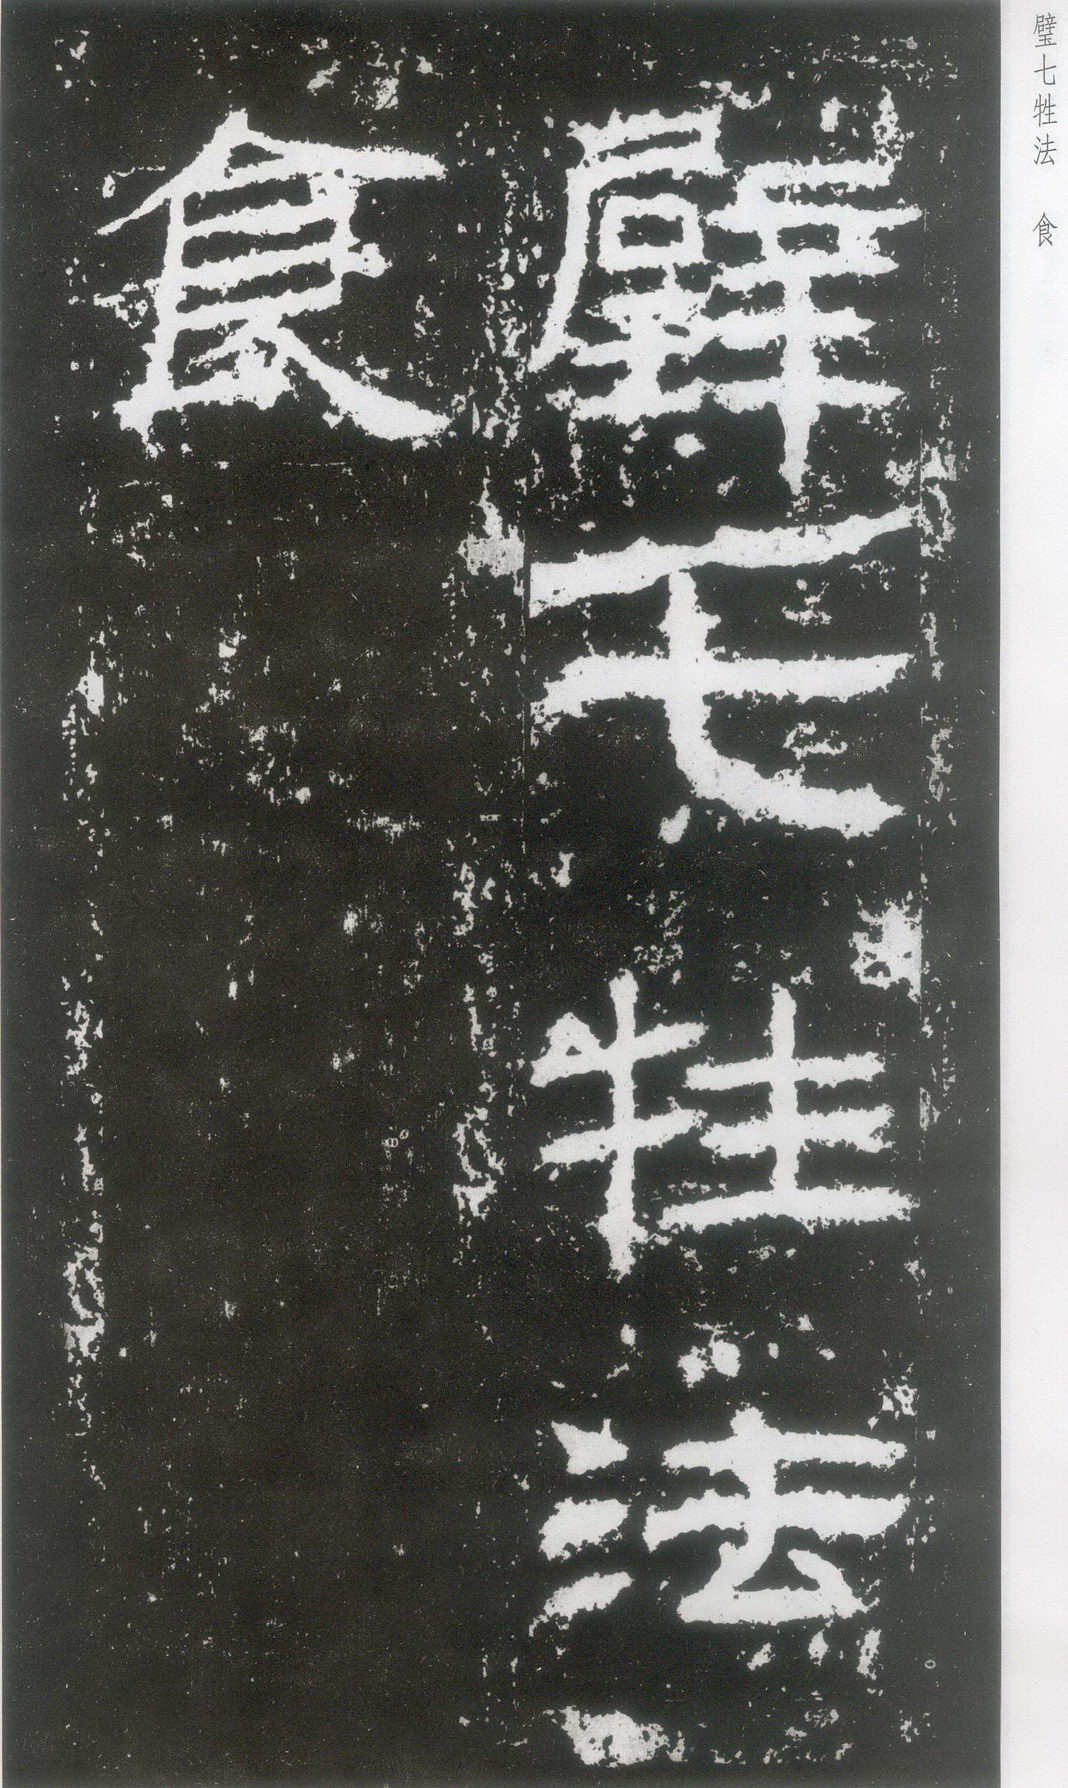 璧七牲法 食
璧七牲法
食